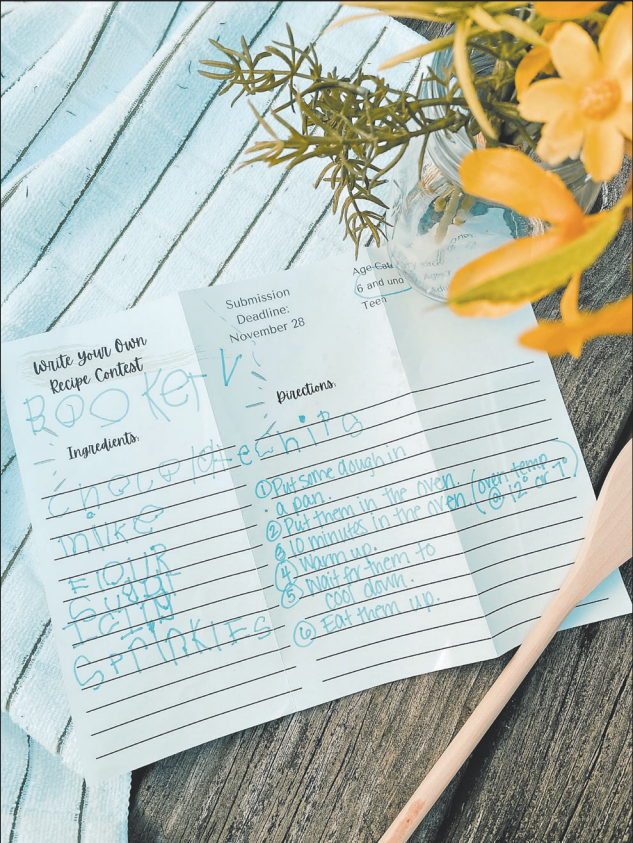 Write Your Own
Recipe Contest
BOOKER V
Submission
Deadline:
November 28
Age
6 and
Teen
Ingredients:
chocolate chips
milke
FlOUR
SUgaR
ICING
SPRINKlES
Directions:
① Put some dough in
a pan.
② Put them in the oven.
③ 10 minutes in the oven. (oven temp
@ 12° or 7°)
④ Warm up.
⑤ Wait for them to
cool down.
⑥ Eat them up.